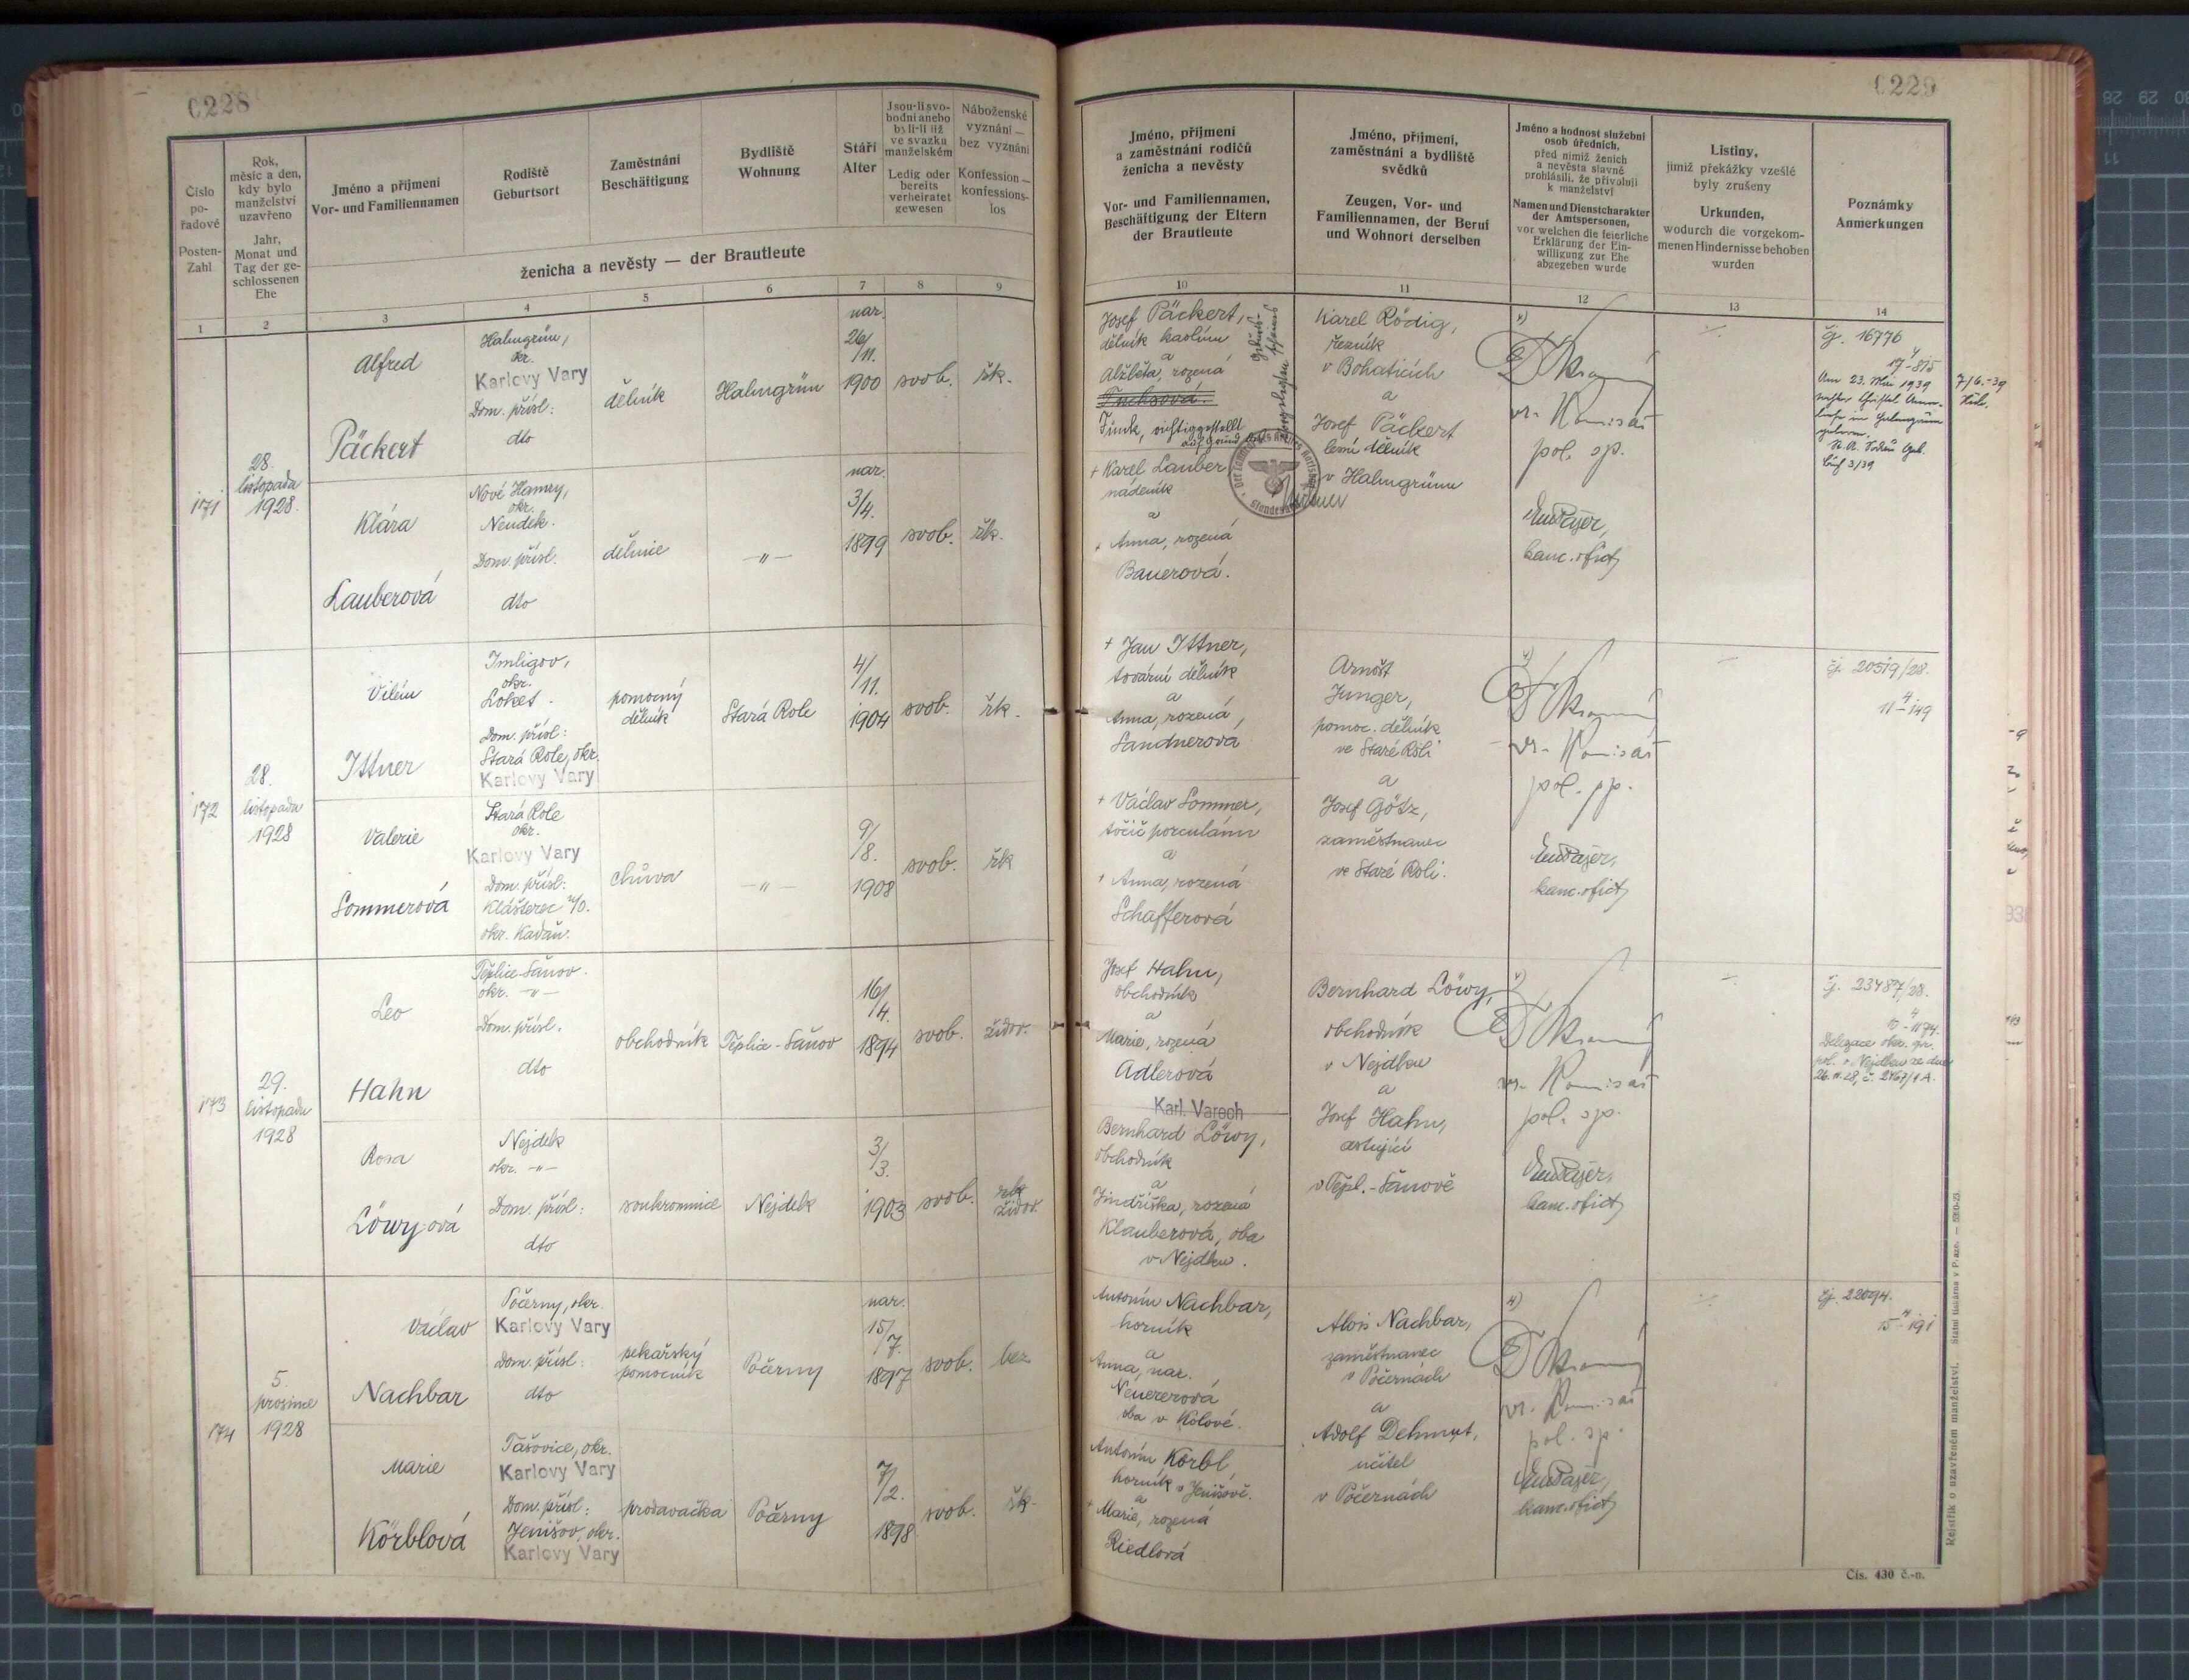 C228
Číslo pořadové
Posten-Zahl
Rok, měsíc a den, kdy bylo manželství uzavřeno
Jahr, Monat und Tag der geschlossenen Ehe
Jméno a příjmení
Vor- und Familiennamen
Rodiště
Geburtsort
Zaměstnání
Beschäftigung
Bydliště
Wohnung
Stáří
Alter
Jsou-li svobodni anebo byli-li již ve svazku manželském
Ledig oder bereits verheiratet gewesen
Náboženské vyznání — bez vyznání
Konfession — konfessionslos
ženicha a nevěsty — der Brautleute
1 2 3 4 5 6 7 8 9
171
28.
listopadu
1928.
Alfred
Päckert
Halmgrün,
okr.
Karlovy Vary
Dom. přísl:
dto
dělník
Halmgrün
nar.
26/
/11.
1900
svob.
řk.
Klára
Lauberová
Nové Hamry,
okr.
Neudek.
Dom. přísl.
dto
dělnice
—"—
nar.
3/4.
1899
svob.
řk.
172
28.
listopadu
1928
Vilém
Ittner
Imligov,
okr.
Loket.
Dom. přísl:
Stará Role, okr.
Karlovy Vary
pomocný
dělník
Stará Role
4/
/11.
1904
svob.
řk.
Valerie
Sommerová
Stará Role
okr.
Karlovy Vary
Dom. přísl:
Klášterec n/O.
okr. Kadaň.
chůva
—"—
9/
/8.
1908
svob.
řk
173
29.
listopadu
1928
Leo
Hahn
Teplice-Šanov.
okr. —"—
Dom. přísl.
dto
obchodník
Teplice-Šanov
16/
/4.
1894
svob.
židov.
Rosa
Löwy-ová
Nejdek
okr. —"—
Dom. přísl:
dto
soukromnice
Nejdek
3/
/3.
1903
svob.
řk
židov.
174
5.
prosince
1928
Václav
Nachbar
Počerny, okr.
Karlovy Vary
Dom. přísl:
dto
pekařský
pomocník
Počerny
nar.
15/
/7.
1897
svob.
bez
Marie
Körblová
Tašovice, okr.
Karlovy Vary
Dom. přísl:
Jenišov, okr.
Karlovy Vary
prodavačka
Počerny
7/
/2.
1898
svob.
řk.
C229
Jméno, příjmení
a zaměstnání rodičů
ženicha a nevěsty
Vor- und Familiennamen,
Beschäftigung der Eltern
der Brautleute
Jméno, příjmení,
zaměstnání a bydliště
svědků
Zeugen, Vor- und
Familiennamen, der Beruf
und Wohnort derselben
Jméno a hodnost služební
osob úředních,
před nimiž ženich
a nevěsta slavně
prohlásili, že přivolují
k manželství
Namen und Dienstcharakter
der Amtspersonen,
vor welchen die feierliche
Erklärung der Ein-
willigung zur Ehe
abgegeben wurde
Listiny,
jimiž překážky vzešlé
byly zrušeny
Urkunden,
wodurch die vorgekom-
menen Hindernisse behoben
wurden
Poznámky
Anmerkungen
10 11 12 13 14
Josef Päckert,
dělník kaolinu
a
Alžběta, rozená
Fuchsová.
Funk, richtiggestellt
auf Grund
Karel Rödig,
řezník
v Bohaticích
a
Josef Päckert
lesní dělník
v Halmgrünu
vr. Komisař
pol. sp.
kanc. ofict
Čj. 16776
4
17-815
Am 23. Mai 1939
7/6.-39
+ Karel Lauber
nádeník
a
+ Anna, rozená
Bauerová.
+ Jan Ittner,
tovární dělník
a
Anna, rozená,
Sandnerová
Arnošt
Junger,
pomoc. dělník
ve Staré Roli
a
Josef Götz,
zaměstnanec
ve Staré Roli.
4)
vr. Komisař
pol. sp.
kanc. ofict
čj. 20519/28.
4
11-149
+ Václav Sommer,
točič porculánu
a
+ Anna, rozená
Schafferová
Josef Hahn,
obchodník
a
Marie, rozená
Adlerová
Karl. Varech
Bernhard Löwy,
obchodník
v Nejdku
a
Josef Hahn,
cestující
v Tepl.-Šanově
vr. Komisař
pol. sp.
kanc. ofict
Čj. 23487/28.
4
Delegace okr. spr.
pol. v Nejdku ze dne
26.11.28, č. 2467/1 A.
Bernhard Löwy,
obchodník
a
Jindřiška, rozená
Klauberová, oba
v Nejdku.
Antonín Nachbar,
horník
a
Anna, nar.
Neuererová
oba v Kolové.
Alois Nachbar,
zaměstnanec
v Počernách
a
Adolf Dehmut,
učitel
v Počernách
4)
vr. Komisař
pol. sp.
kanc. ofict
Čj. 22094.
4
15-191
Antonín Körbl
horník v Jenišově.
a
+ Marie, rozená
Riedlová
Rejstřík o uzavřeném manželství. Státní tiskárna v Praze.
Čís. 430 č.-n.